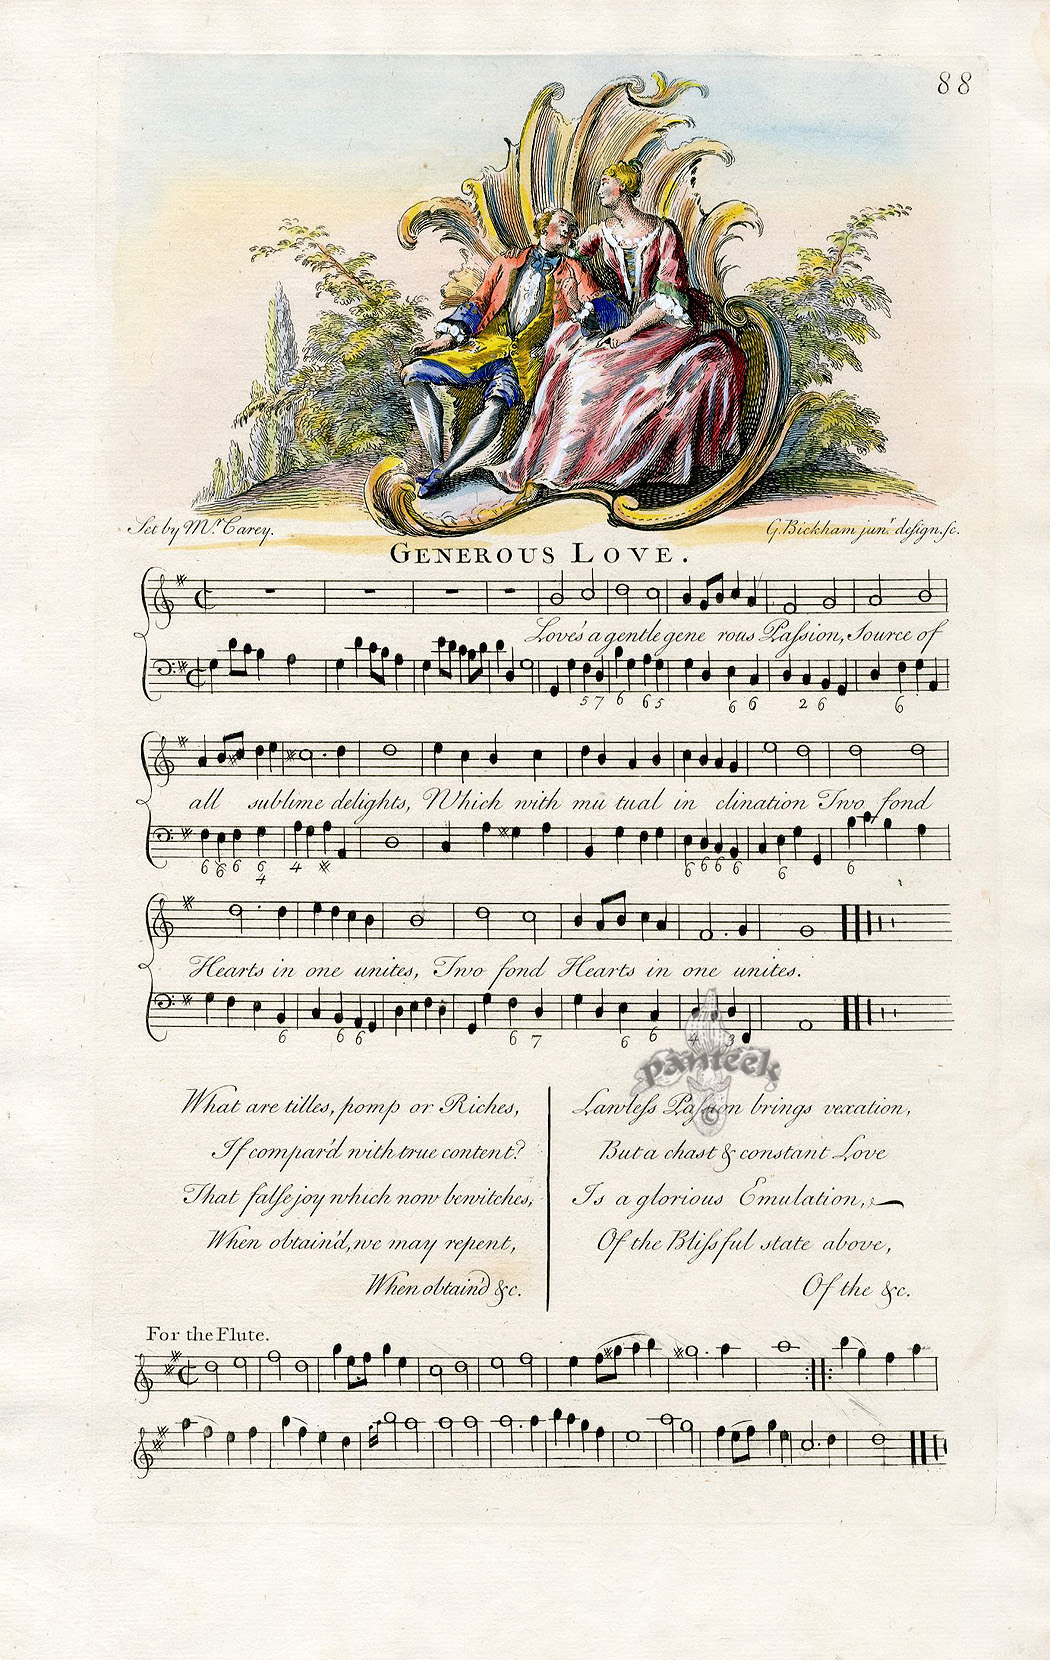 88
Set by Mr. Carey.
G. Bickham junr. design. sc.
GENEROUS LOVE.
Love's a gentle gene rous Paſsion, Source of
5 7 6 6 5 6 6 2 6 6
all sublime delights, Which with mu tual in clination Two fond
6 6 6 6 4 6 6 6 6 6 6
4
Hearts in one unites, Two fond Hearts in one unites.
6 6 6 6 7 6 6 4 3
panteek
©
What are titles, pomp or Riches,
If compar'd with true content?
That falſe joy which now bewitches,
When obtain'd, we may repent,
When obtain'd &c.
Lawleſs Paſsion brings vexation,
But a chast & constant Love
Is a glorious Emulation,
Of the Bliſsful state above,
Of the &c.
For the Flute.